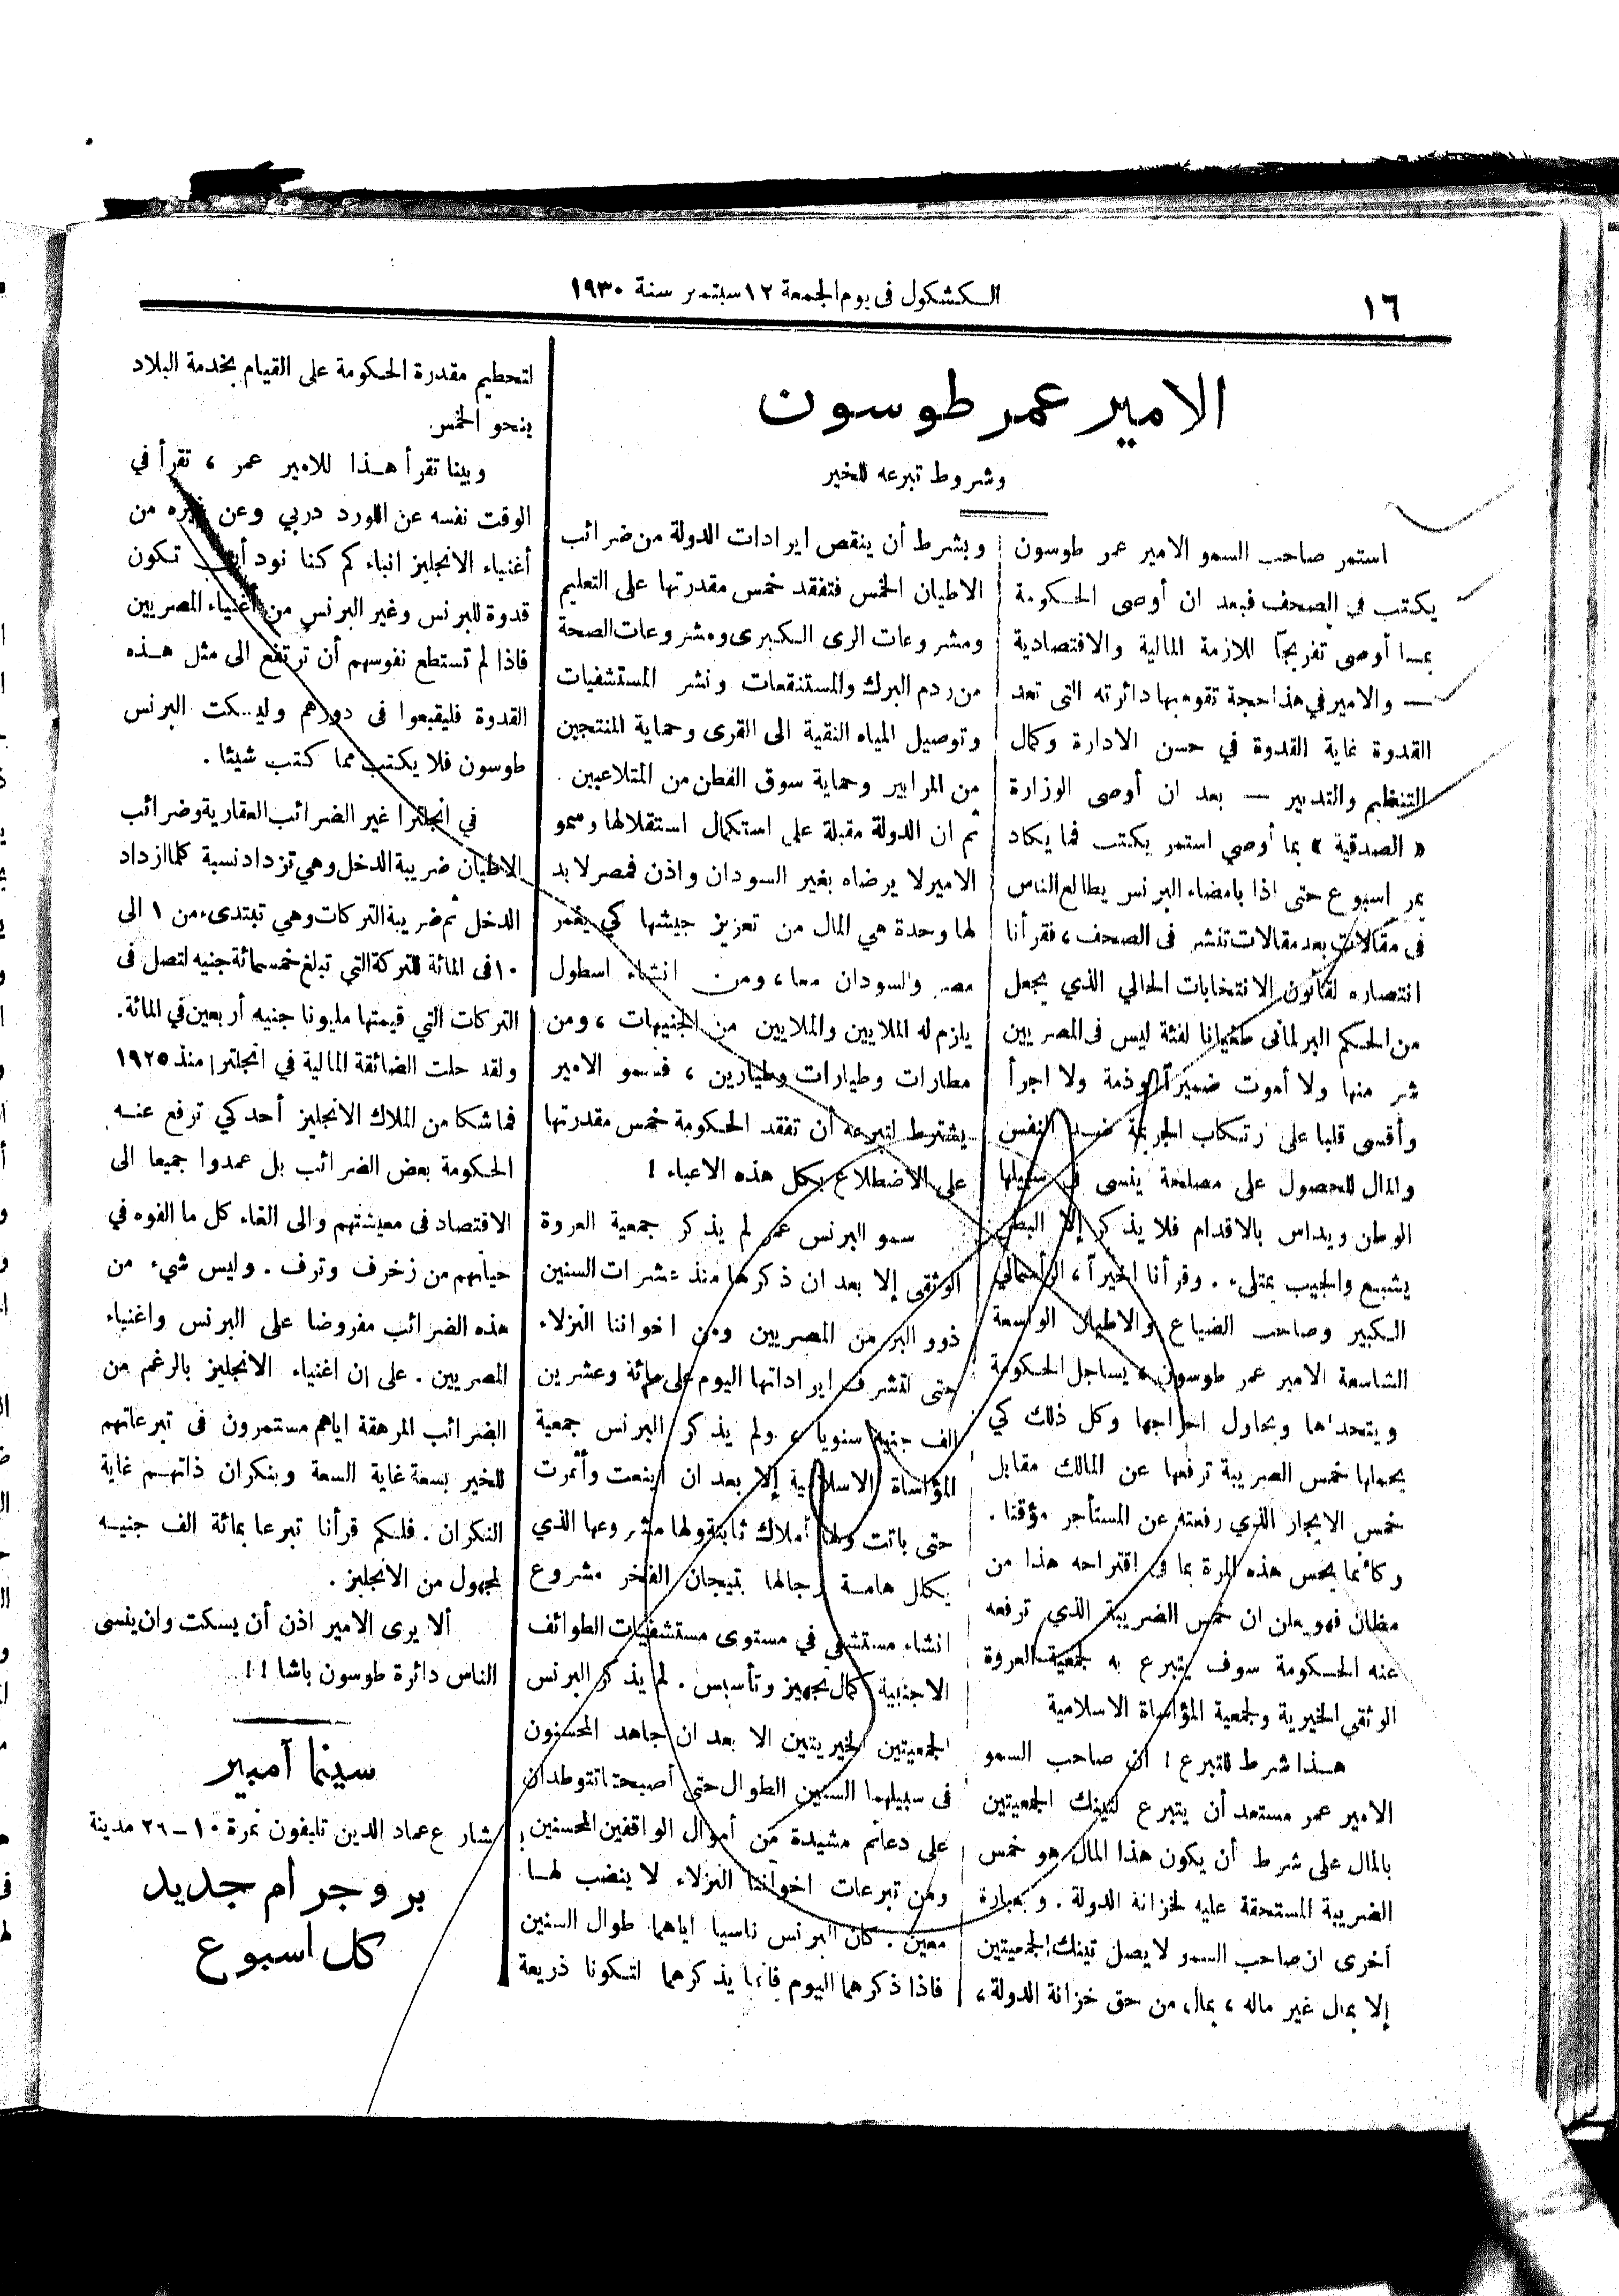 ١٦
الكشكول في يوم الجمعة ١٢ سبتمبر سنة ١٩٣٠
الامير عمر طوسون
وشروط تبرعه للخير
استمر صاحب السمو الامير عمر طوسون
يكتب في الصحف فبعد ان أوصى الحكومة
بما أوصى تفريجاً للازمة المالية والاقتصادية
— والامير في هذا حجة تقوم بها دائرته التي تعد
القدوة غاية القدوة في حسن الادارة وكمال
التنظيم والتدبير — بعد ان أوصى الوزارة
« الصدقية » بما أوصي استمر يكتب فما يكاد
يمر اسبوع حتى اذا بامضاء البرنس يطالع الناس
في مقالات بعد مقالات تنشر في الصحف، فقرأنا
انتصاره لقانون الانتخابات الحالي الذي يجعل
من الحكم البرلماني طغيانا لفئة ليس في المصريين
شر منها ولا أموت ضميراً وذمة ولا اجرأ
وأقسى قلبا على رتكاب الجريمة ضد النفس
والمال للحصول على مصلحة ينسى في سبيلها
الوطن ويداس بالاقدام فلا يذكر إلا البطن
يشبع والجيب يمتلىء . وقرأنا اخيراً، الرأسمالي
الكبير وصاحب الضياع والاطيان الواسعة
الشاسعة الامير عمر طوسون، يساجل الحكومة
ويتحداها ويحاول احراجها وكل ذلك كي
يحملها خمس الضريبة ترفعها عن المالك مقابل
خمس الايجار الذي رفعته عن المستأجر مؤقتا .
وكأنما يحس هذه المرة بما في اقتراحه هذا من
مظان فهو يعلن ان خمس الضريبة الذي ترفعه
عنه الحكومة سوف يتبرع به لجمعية العروة
الوثقي الخيرية ولجمعية المؤاساة الاسلامية
هذا شرط للتبرع ! ان صاحب السمو
الامير عمر مستعد أن يتبرع لتينك الجمعيتين
بالمال على شرط أن يكون هذا المال هو خمس
الضريبة المستحقة عليه لخزانة الدولة . وبعبارة
أخرى ان صاحب السمو لا يصل تينك الجمعيتين
إلا بمال غير ماله ، بمال من حق خزانة الدولة ،
وبشرط أن ينقص ايرادات الدولة من ضرائب
الاطيان الخمس فتفقد خمس مقدرتها على التعليم
ومشروعات الري الكبرى ومشروعات الصحة
من ردم البرك والمستنقعات ونشر المستشفيات
وتوصيل المياه النقية الى القرى وحماية المنتجين
من المرابير وحماية سوق القطن من المتلاعبين .
ثم ان الدولة مقبلة على استكمال استقلالها وسمو
الامير لا يرضاه بغير السودان واذن فمصر لا بد
لها وحدة هي المال من تعزيز جيشها كي يغمر
مصر والسودان معا، ومن انشاء اسطول
يلزم له الملايين والملايين من الجنيهات ، ومن
مطارات وطيارات وطيارين ، فسمو الامير
يشترط لتبرعه أن تفقد الحكومة خمس مقدرتها
على الاضطلاع بكل هذه الاعباء !
سمو البرنس عمر لم يذكر جمعية العروة
الوثقى إلا بعد ان ذكرها منذ عشرات السنين
ذوو البر من المصريين ومن اخواننا النزلاء
حتى لتشرف ايراداتها اليوم على مائة وعشرين
الف جنيه سنويا ، ولم يذكر البرنس جمعية
المؤاساة الاسلامية إلا بعد ان اينعت وأثمرت
حتى باتت ولها أملاك ثابتة ولها مشروعها الذي
يكلل هامة رجالها بتيجان الفخر مشروع
انشاء مستشفي في مستوى مستشفيات الطوائف
الاجنبية كمال تجهيز وتأسيس . لم يذكر البرنس
الجمعيتين الخيريتين الا بعد ان جاهد المحسنون
في سبيلهما السنين الطوال حتى أصبحتا تتوطدان
على دعائم مشيدة من أموال الواقفين المحسنين
ومن تبرعات اخواننا النزلاء لا ينضب لها
معين . كان البرنس ناسيا اياهما طوال السنين
فاذا ذكرهما اليوم فانما يذكرهما لتكونا ذريعة
لتحطيم مقدرة الحكومة على القيام بخدمة البلاد
بنحو الخمس.
وبينا تقرأ هذا للامير عمر ، تقرأ في
الوقت نفسه عن اللورد دربي وعن غيره من
أغنياء الانجليز انباء كم كنا نود أن تكون
قدوة للبرنس وغير البرنس من أغنياء المصريين
فاذا لم تستطع نفوسهم أن ترتفع الى مثل هذه
القدوة فليقبعوا في دورهم وليسكت البرنس
طوسون فلا يكتب مما كتب شيئا .
في انجلترا غير الضرائب العقارية وضرائب
الاطيان ضريبة الدخل وهي تزداد نسبة كلما ازداد
الدخل ثم ضريبة التركات وهي تبتدىء من ١ الى
١٠ في المائة للتركة التي تبلغ خمسمائة جنيه لتصل في
التركات التي قيمتها مليونا جنيه أربعين في المائة.
ولقد حلت الضائقة المالية في انجلترا منذ ١٩٢٥
فما شكا من الملاك الانجليز أحد كي ترفع عنه
الحكومة بعض الضرائب بل عمدوا جميعا الى
الاقتصاد في معيشتهم والى الغاء كل ما الفوه في
حياتهم من زخرف وترف . وليس شيء من
هذه الضرائب مفروضا على البرنس واغنياء
المصريين . على ان اغنياء الانجليز بالرغم من
الضرائب المرهقة اياهم مستمرون في تبرعاتهم
للخير بسعة غاية السعة وبنكران ذاتهم غاية
النكران . فلكم قرأنا تبرعا بمائة الف جنيه
لمجهول من الانجليز .
ألا يرى الامير اذن أن يسكت وان ينسى
الناس دائرة طوسون باشا ! !
سينما آمبير
بشارع عماد الدين تليفون نمرة ١٠ – ٢٦ مدينة
بروجرام جديد
كل اسبوع